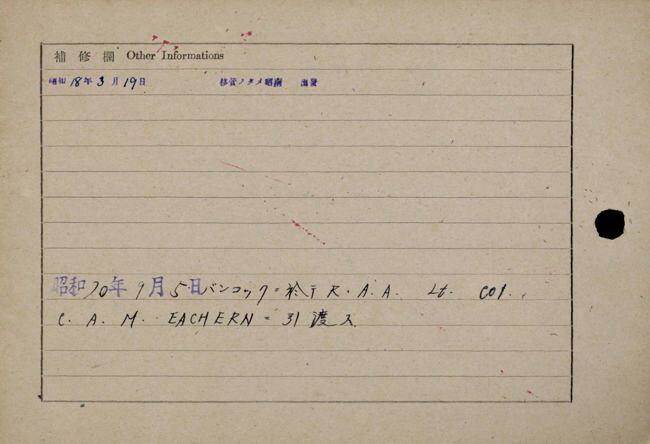 補修欄 Other Informations
昭和18年3月19日 移管ノタメ昭南出發
昭和20年9月5日バンコックニ於テR.A.A. Lt. Col.
C. A. M. EACHERNニ引渡ス